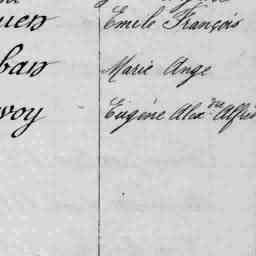 uen Emile François
ban Marie Ange
voy Eugène Alex.dre Alfred